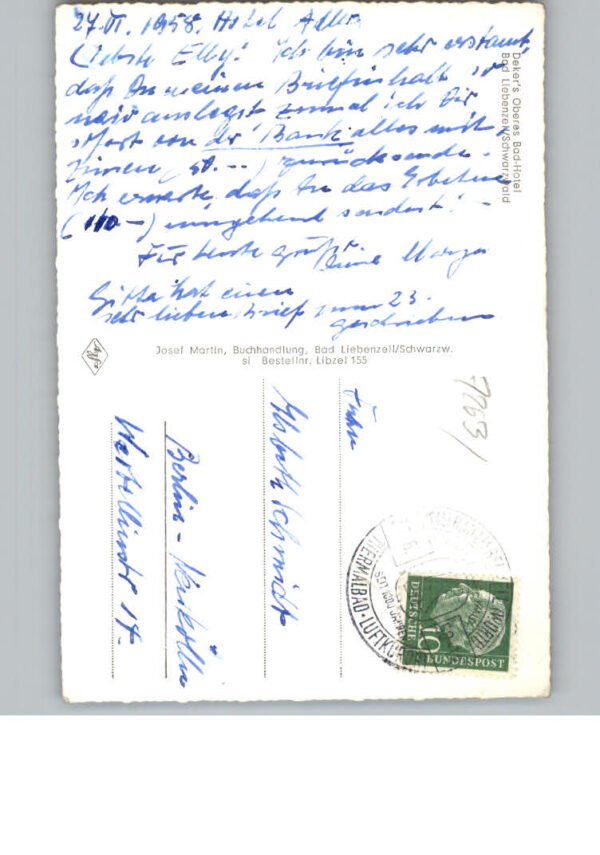 27.VI. 1958. Hotel Adler
Liebste Elly! Ich bin sehr erstaunt,
daß Du meinen Briefinhalt so
auslegst zumal ich Dir
sofort von der Bank alles mit
Zinsen (50.--) zurücksende.
Ich erwarte, daß Du das Erbetene
(110.-) umgehend sendest!-
Für heute grüßt
Deine
Gitta hat einen
sehr lieben Brief zum 23.
geschrieben
Deker's Oberes Bad-Hotel
Bad Liebenzell/Schwarzwald
Agfa
Josef Martin, Buchhandlung, Bad Liebenzell/Schwarzw.
si Bestellnr. Libzel 155
7263/
Elsbeth Schmidt
Berlin - Neukölln
14
THERMALBAD-LUFTKURORT
10
DEUTSCHE
BUNDESPOST